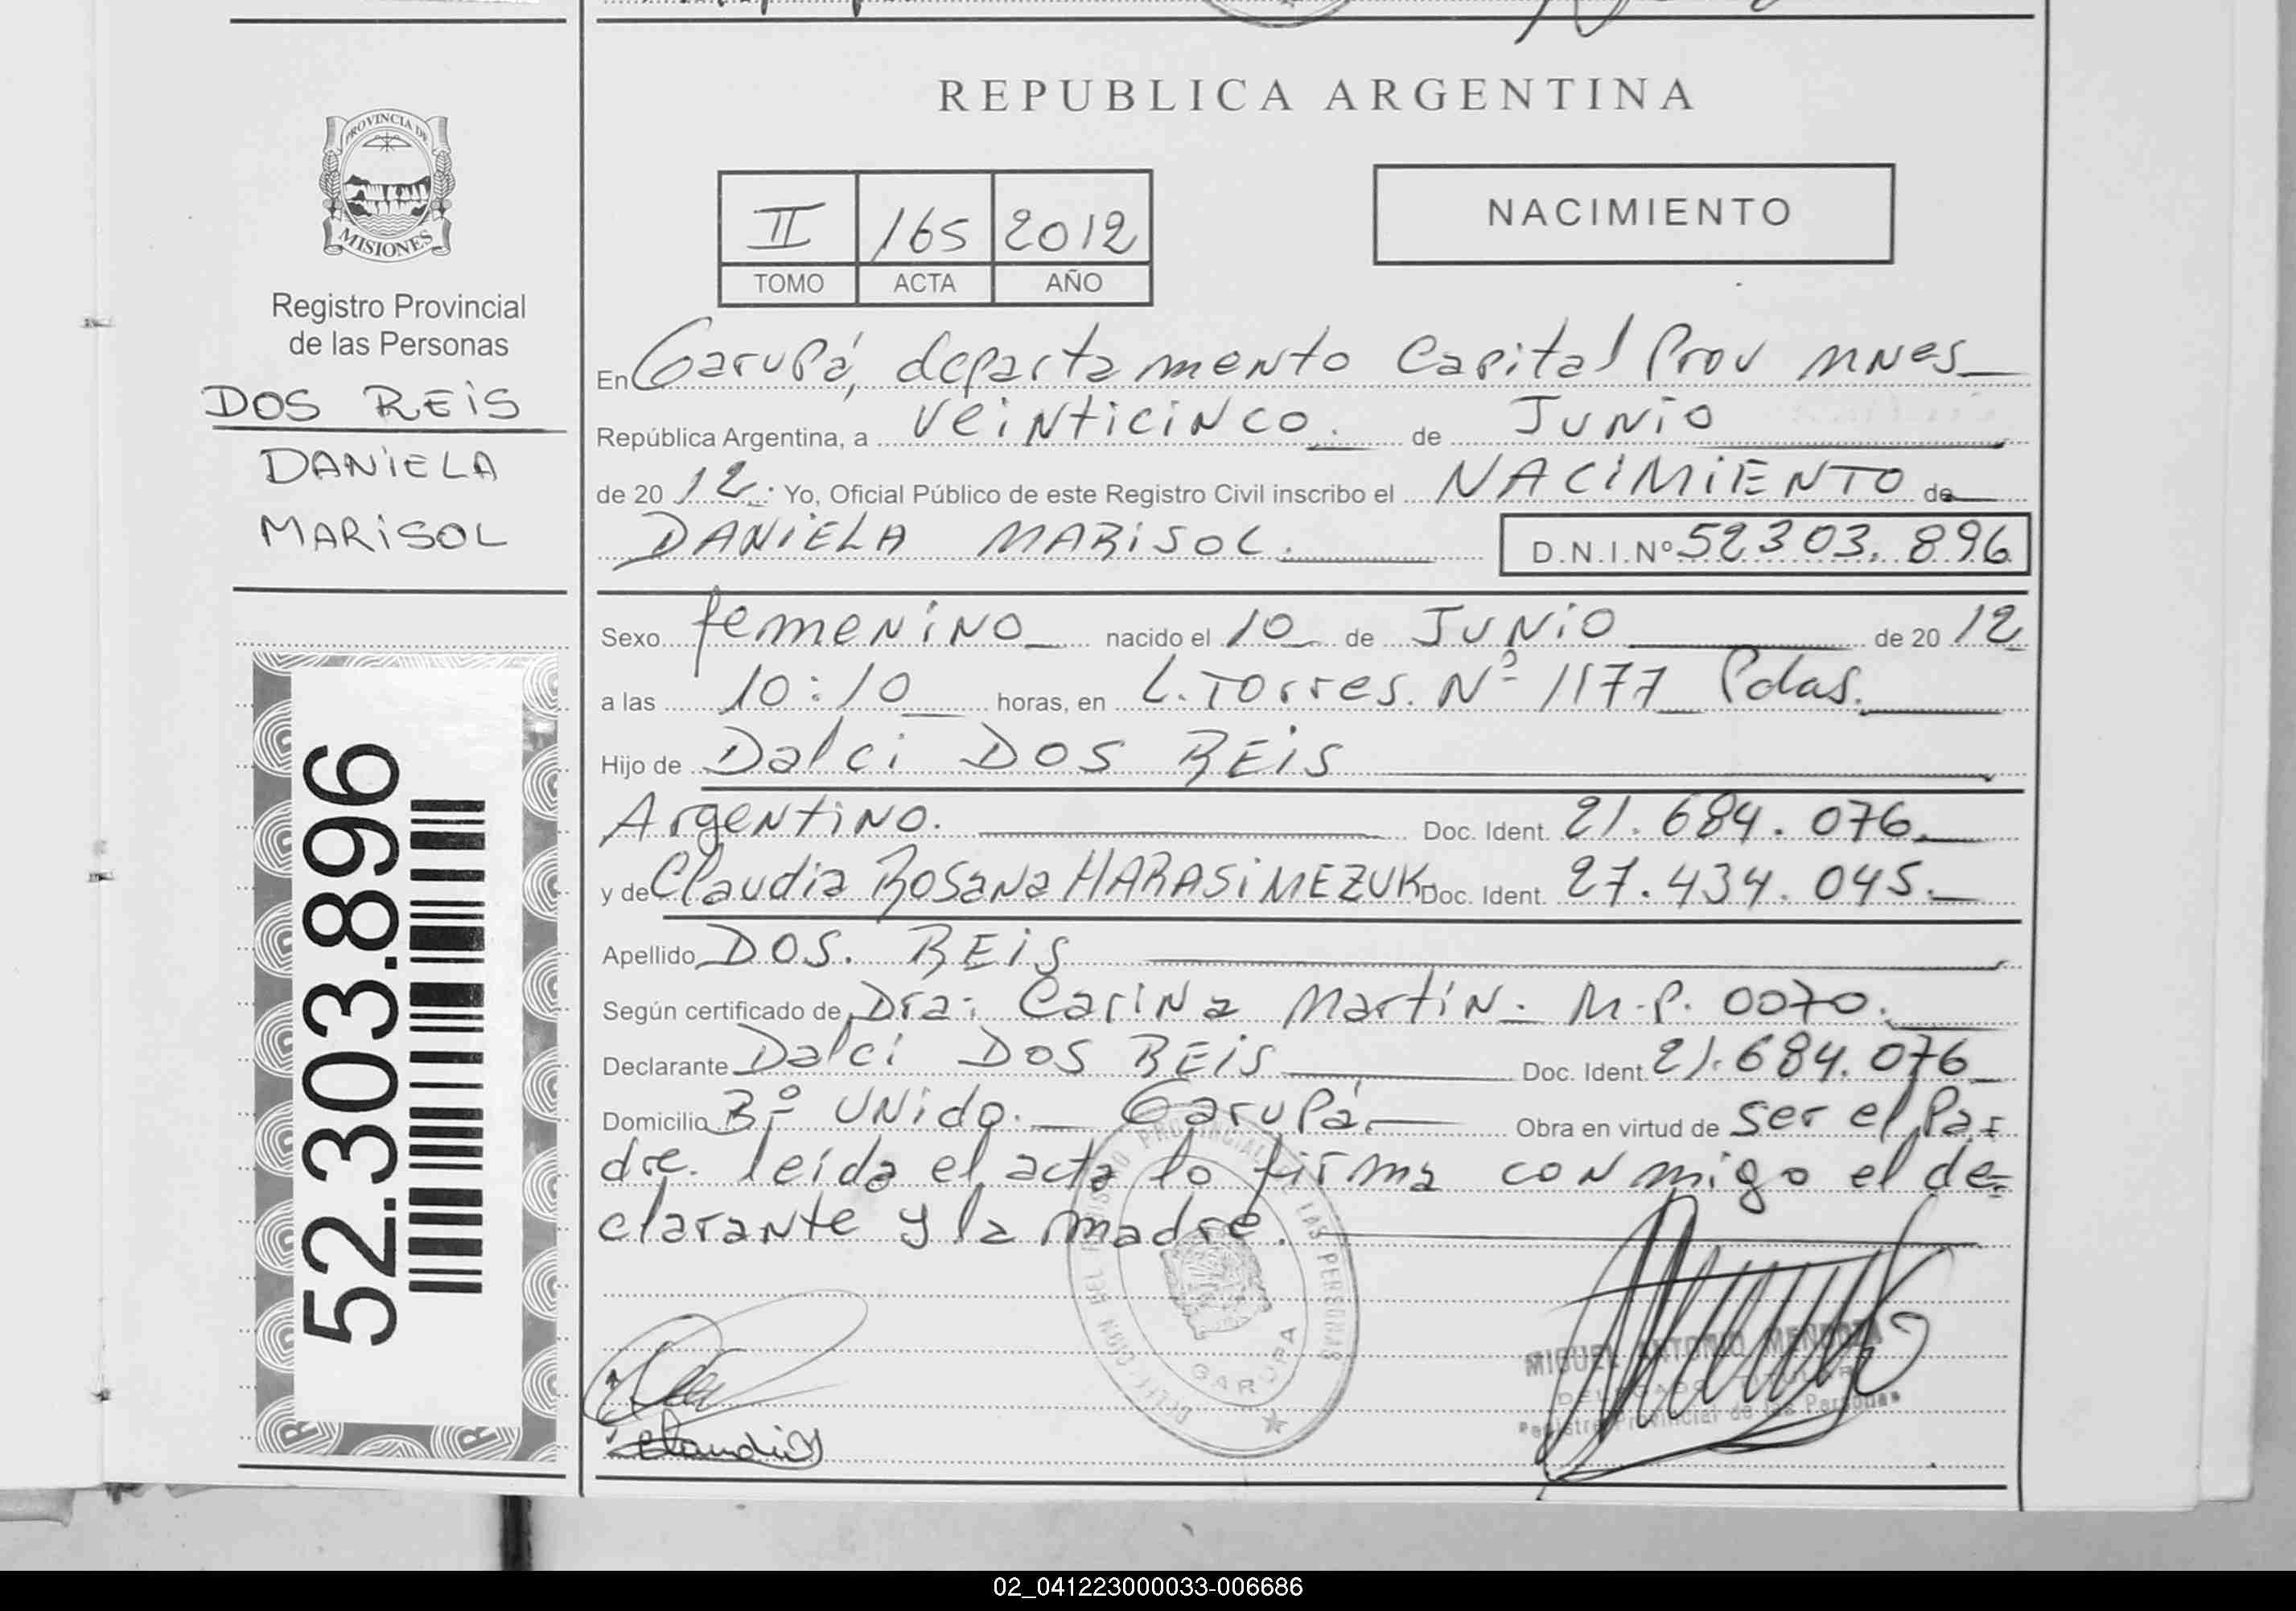 PROVINCIA DE
MISIONES
Registro Provincial
de las Personas
DOS REIS
DANIELA
MARISOL
52.303.896
REPUBLICA ARGENTINA
II 165 2012
TOMO ACTA AÑO
NACIMIENTO
En Garupá, departamento Capital Prov MNes
República Argentina, a veinticinco. de JUNiO
de 20 12. Yo, Oficial Público de este Registro Civil inscribo el NACIMIENTO de
DANIELA MARISOL. D.N.I.Nº 52303.896
Sexo femenino nacido el 10 de JUNiO de 20 12
a las 10:10 horas, en L. Torres. Nº 1177 Pdas.
Hijo de Dalci DOS REIS
Argentino. Doc. Ident. 21.684.076.
y de Claudia Rosana HARASIMEZUK Doc. Ident. 27.434.045.
Apellido DOS. REIS
Según certificado de Dra: Carina Martin. M.P. 0070.
Declarante Dalci DOS REIS Doc. Ident. 21.684.076
Domicilio Bº Unido. Garupá Obra en virtud de ser el Pa-
dre. leída el acta lo firma conmigo el de=
clarante y la madre.
DELEGACION DEL REGISTRO PROVINCIAL DE LAS PERSONAS
GARUPA
Claudia
MIGUEL ANTONIO MENDOZA
DELEGADO TITULAR
Registro Provincial de las Personas
02_041223000033-006686